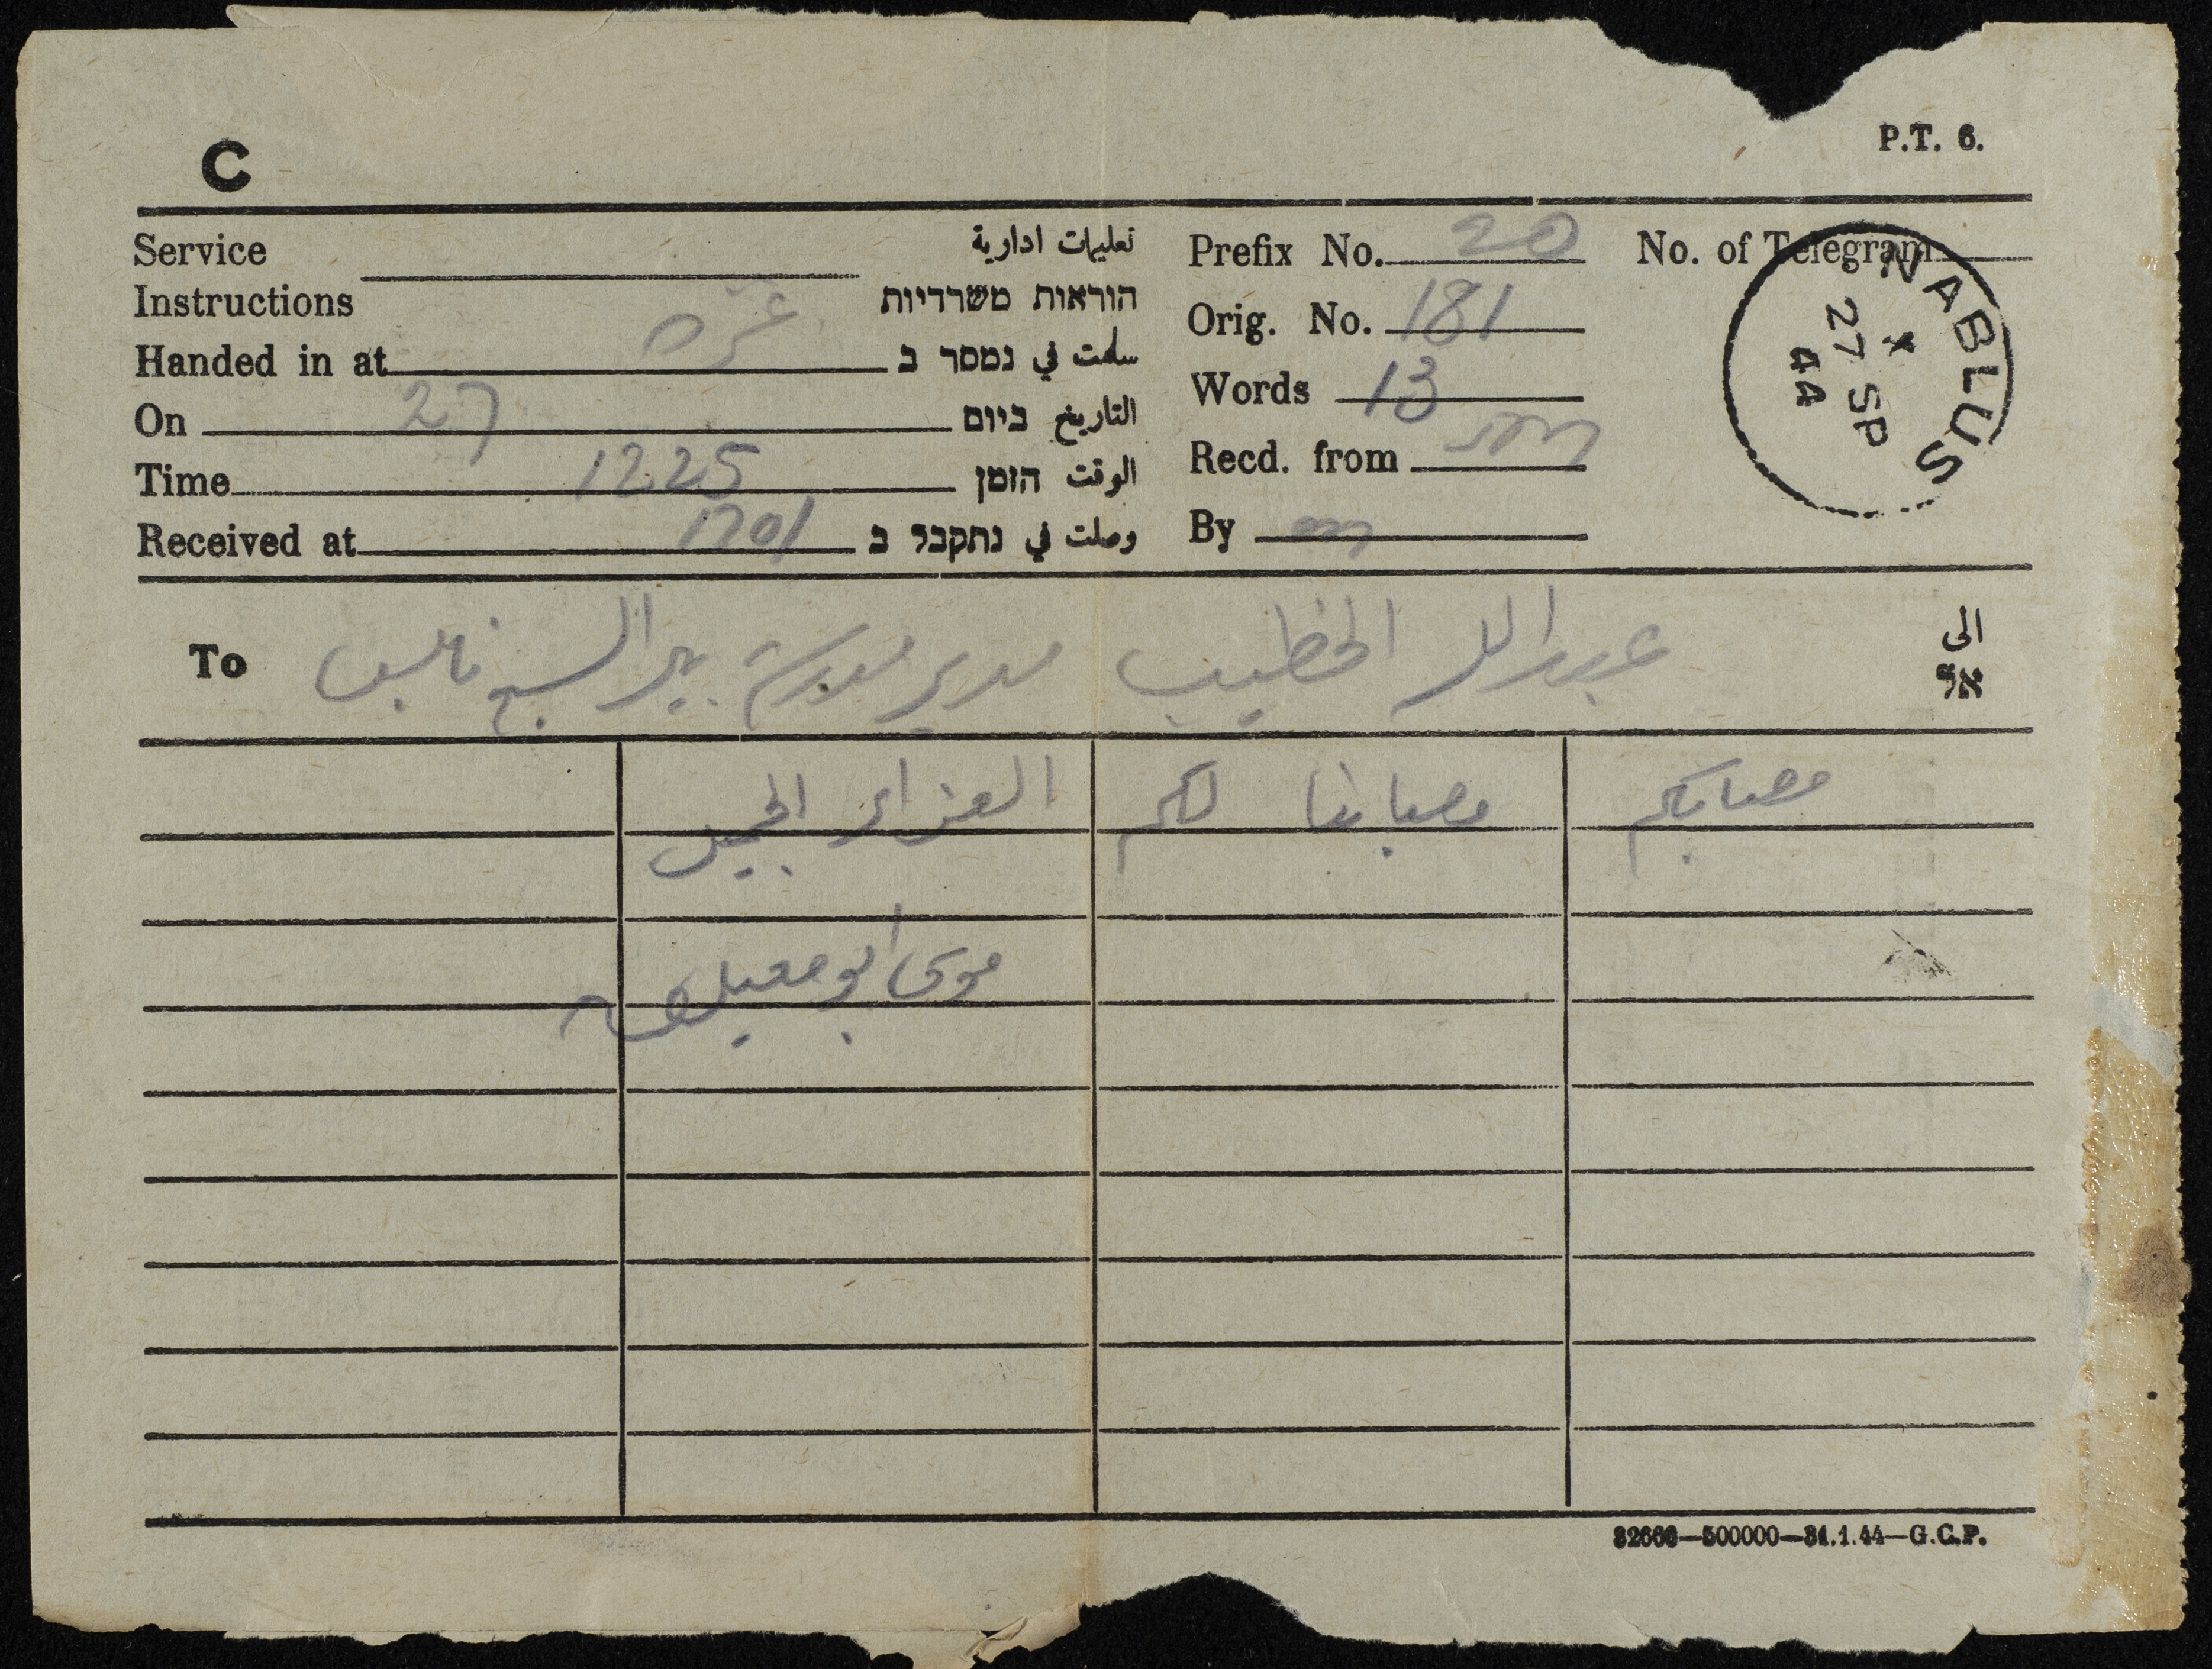 C
P.T. 6.
Service Instructions تعليمات ادارية
הוראות משרדיות
Prefix No. 20 No. of Telegram
Orig. No. 181
Handed in at غزة سلمت في נמסר ב
Words 13
On 27 التاريخ ביום
Recd. from
Time 1225 الوقت הזמן
Received at 1701 وصلت في נתקבל ב
By
NABLUS
X
27 SP
44
To عبد الله الخطيب مدير مدرسة بير السبع نابلس الى
אל
مصابكم مصابنا لكم العزاء الجميل
موسى ابو معيلق
32666—500000—31.1.44—G.C.P.